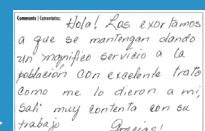 Comments | Comentarios: Hola! Los exortamos
a que se mantengan dando
un magnifico servicio a la
población con excelente trato
como me lo dieron a mi,
sali muy contenta con su
trabajo Gracias!